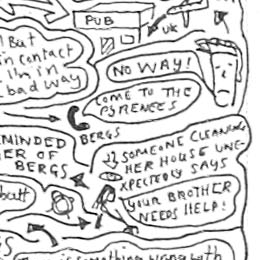 PUB
UK
But
in contact
I'm in
bad way
NO WAY!
COME TO THE
PYRENEES
BERGS
MINDED
ER OF
BERGS
SOMEONE CLEANING
HER HOUSE UNE-
XPECTEDLY SAYS
YOUR BROTHER
NEEDS HELP!
butt
something wrong with